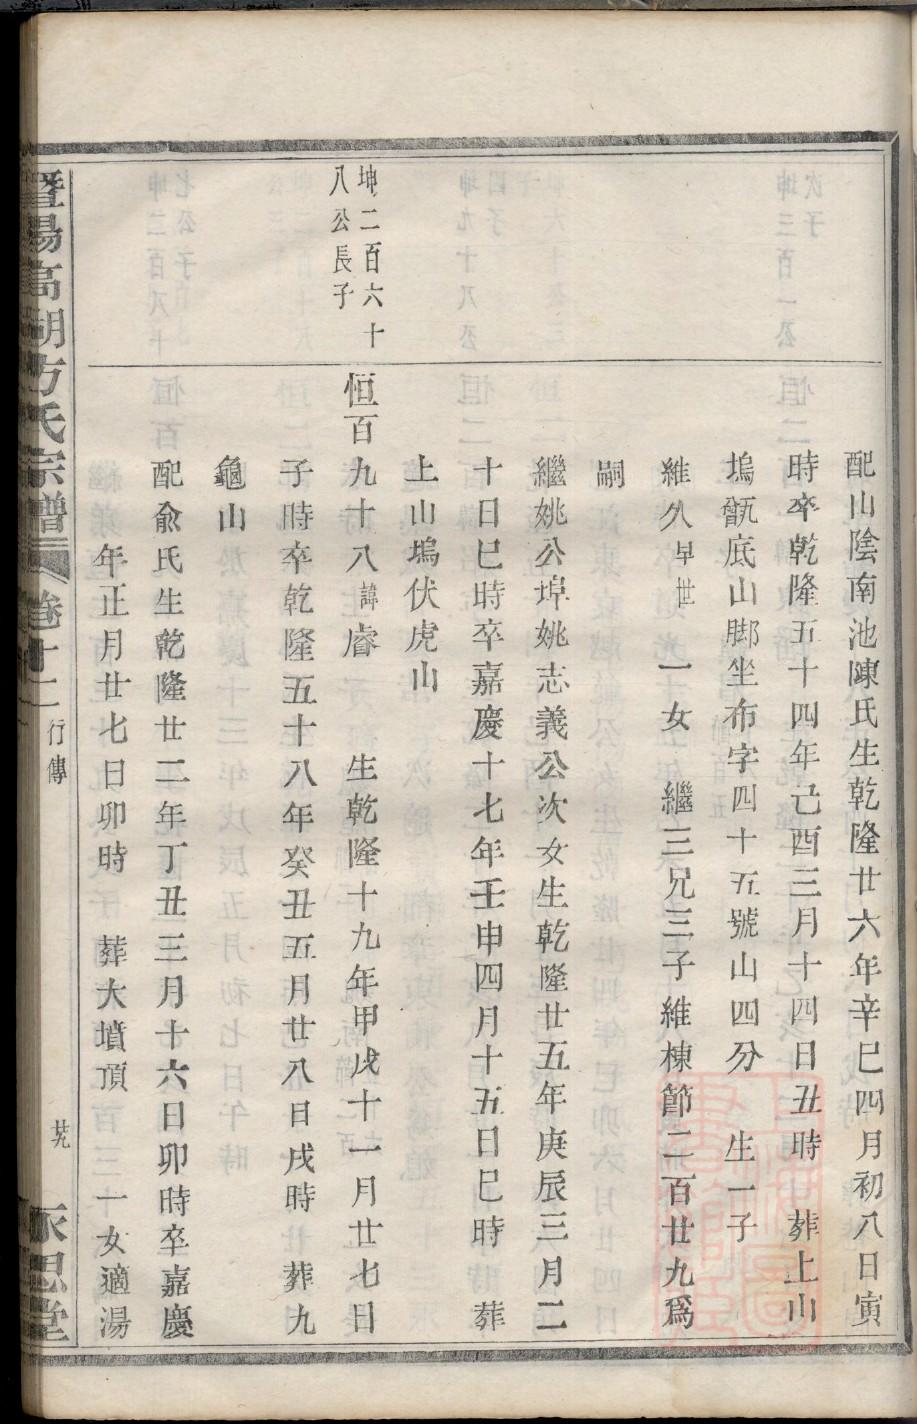 配山陰南池陳氏生乾隆廿六年辛巳四月初八日寅
時卒乾隆五十四年己酉三月十四日丑時　葬上山
塢甑底山脚坐布字四十五號山四分　生一子
維久早世　一女　繼三兄三子維棟節二百廿九爲
嗣
繼姚公埠姚志義公次女生乾隆廿五年庚辰三月二
十日巳時卒嘉慶十七年壬申四月十五日巳時　葬
上山塢伏虎山
坤二百六十
八公長子
恒百九十八諱睿　生乾隆十九年甲戌十一月廿七日
子時卒乾隆五十八年癸丑五月廿八日戌時　葬九
龜山
配俞氏生乾隆廿二年丁丑三月十六日卯時卒嘉慶
年正月廿七日卯時　葬大墳頂　一女適湯
暨陽高湖方氏宗譜　卷十二　行傳　廿九　永思堂